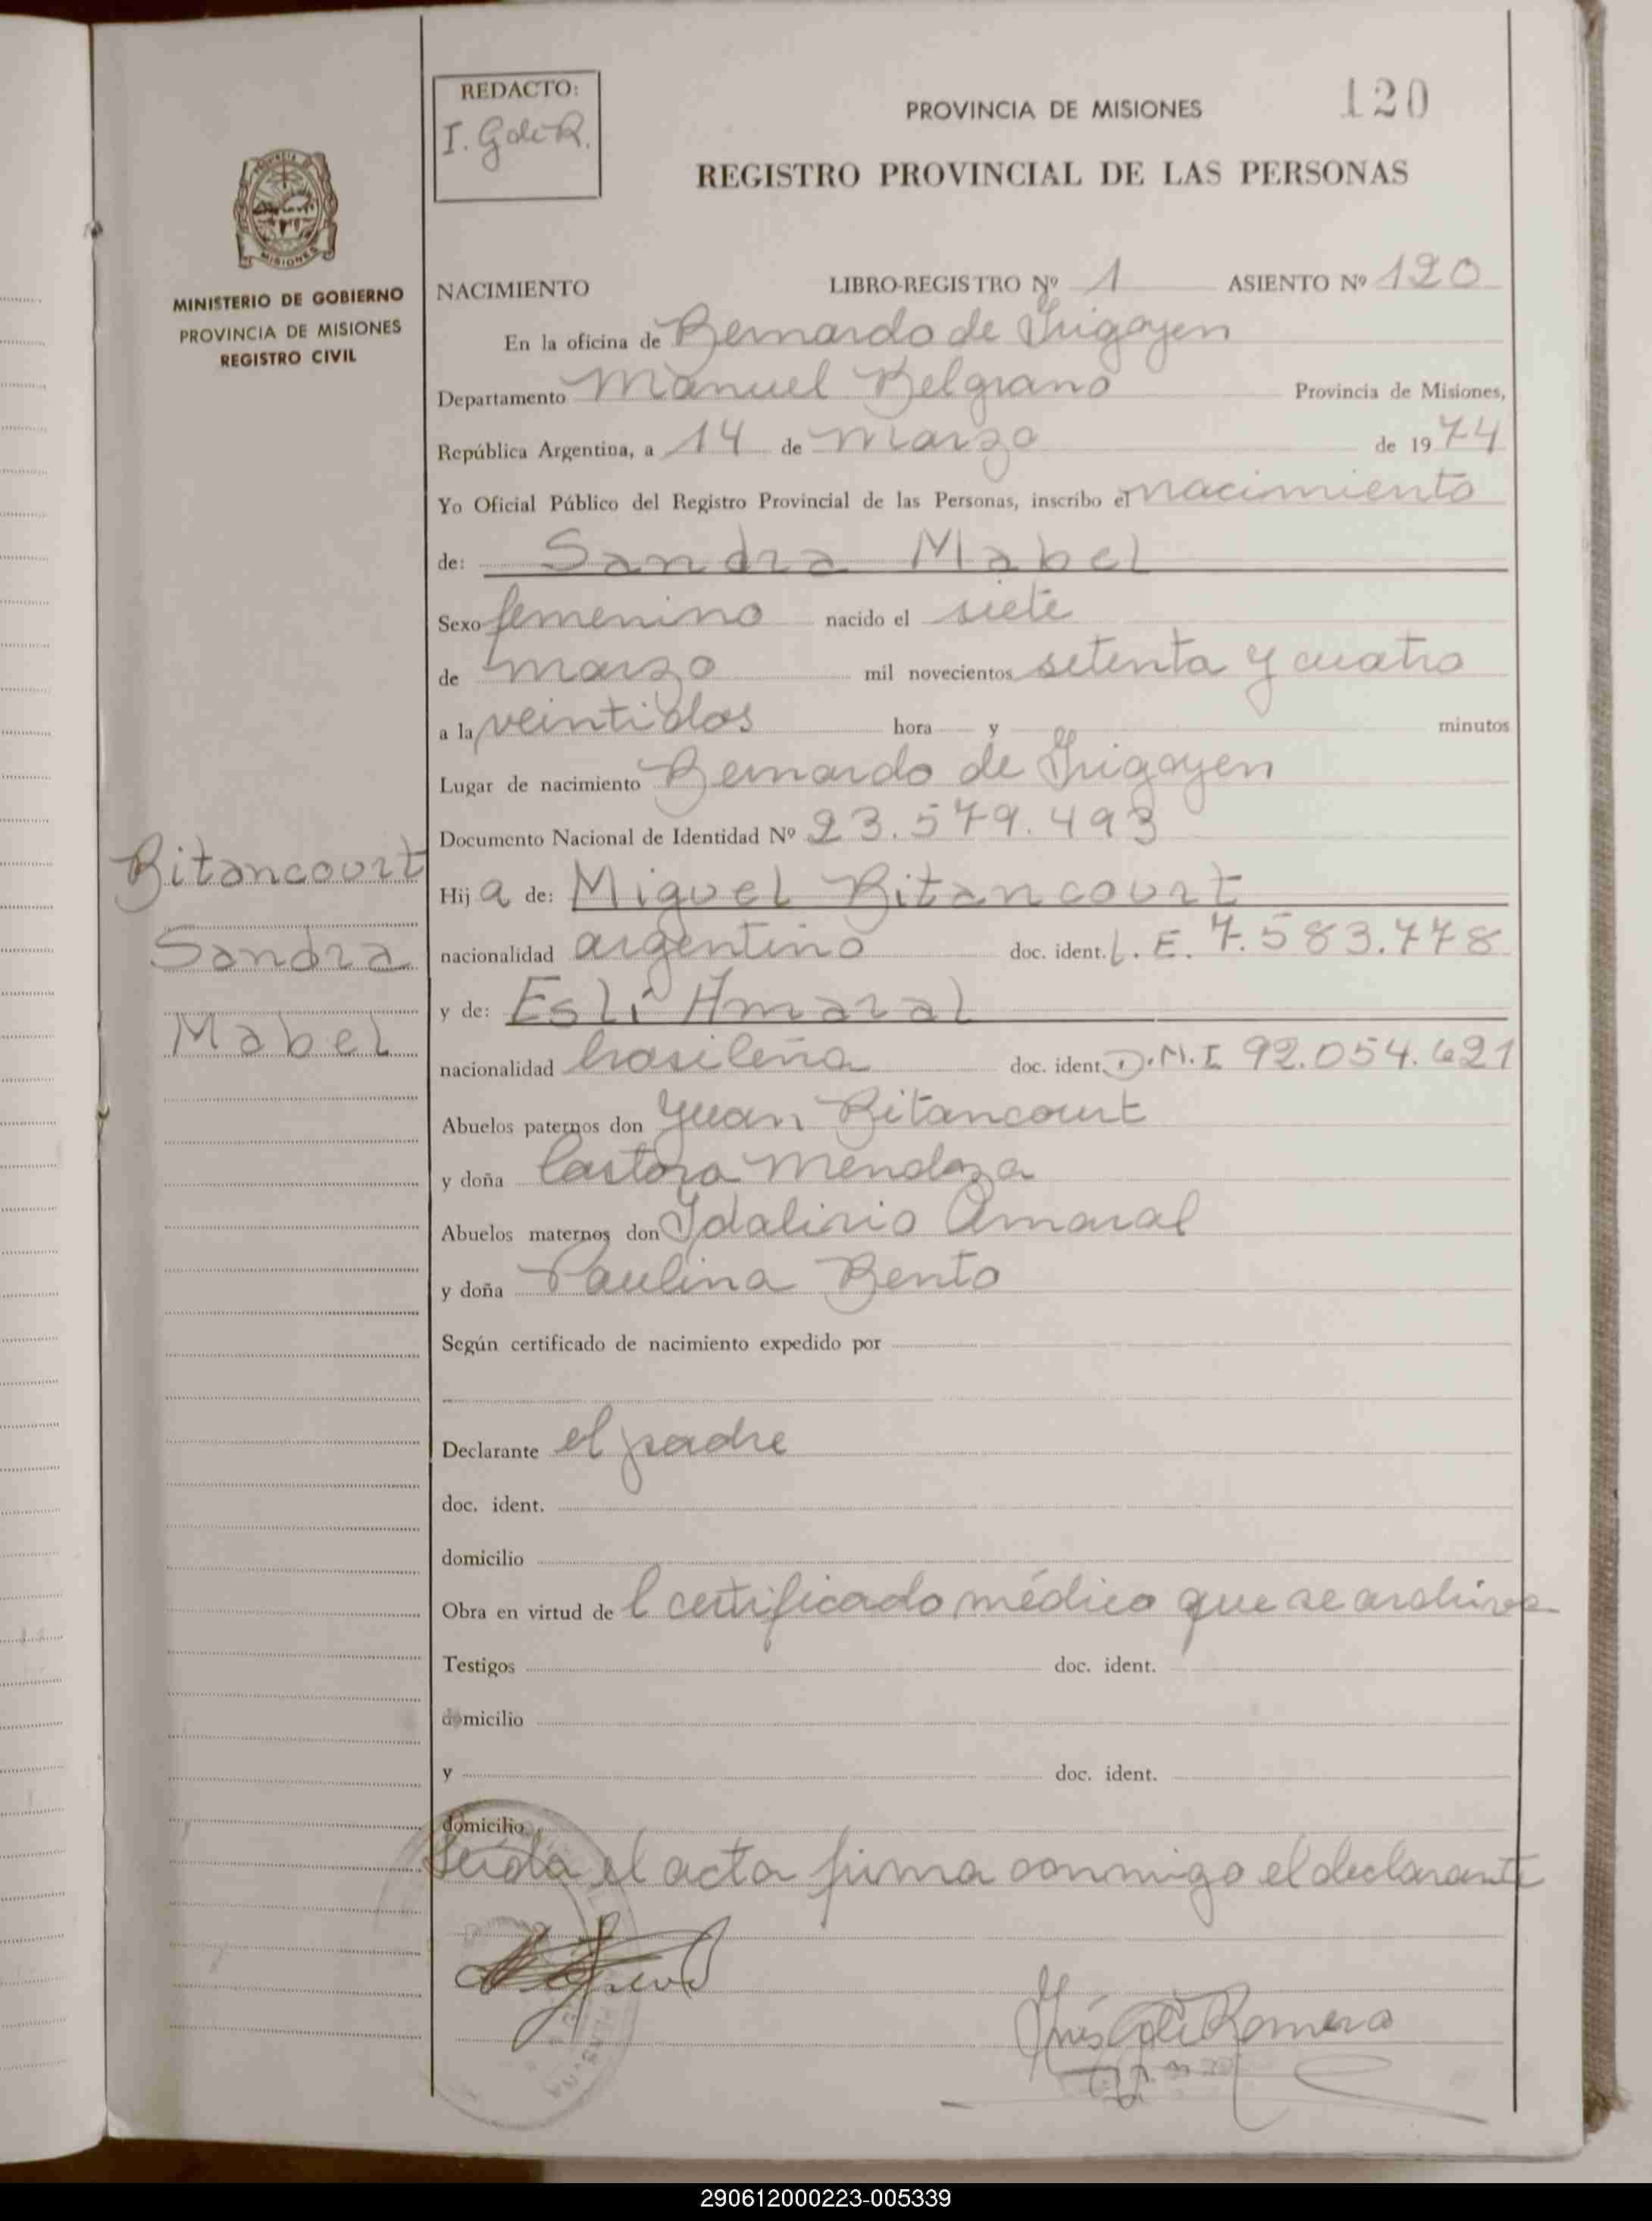 REDACTO:
I. G de R.
PROVINCIA DE MISIONES
120
REGISTRO PROVINCIAL DE LAS PERSONAS
MISIONES
MINISTERIO DE GOBIERNO
PROVINCIA DE MISIONES
REGISTRO CIVIL
NACIMIENTO LIBRO-REGISTRO Nº 1 ASIENTO Nº 120
En la oficina de Bernardo de Irigoyen
Departamento Manuel Belgrano Provincia de Misiones,
República Argentina, a 14 de marzo de 1974
Yo Oficial Público del Registro Provincial de las Personas, inscribo el nacimiento
de: Sandra Mabel
Sexo femenino nacido el siete
de marzo mil novecientos setenta y cuatro
a la veintidos hora y minutos
Lugar de nacimiento Bernardo de Irigoyen
Documento Nacional de Identidad Nº 23.579.493
Bitancourt
Sandra
Mabel
Hija de: Miguel Bitancourt
nacionalidad argentino doc. ident. L.E. 7.583.778
y de: Esli Amaral
nacionalidad brasileña doc. ident. D.N.I 92.054.621
Abuelos paternos don Juan Bitancourt
y doña Castora Mendoza
Abuelos maternos don Idalirio Amaral
y doña Paulina Bento
Según certificado de nacimiento expedido por
Declarante el padre
doc. ident.
domicilio
Obra en virtud del certificado médico que se archiva
Testigos doc. ident.
domicilio
y doc. ident.
domicilio
Leída el acta firma conmigo el declarante
Inés G de Romero
290612000223-005339